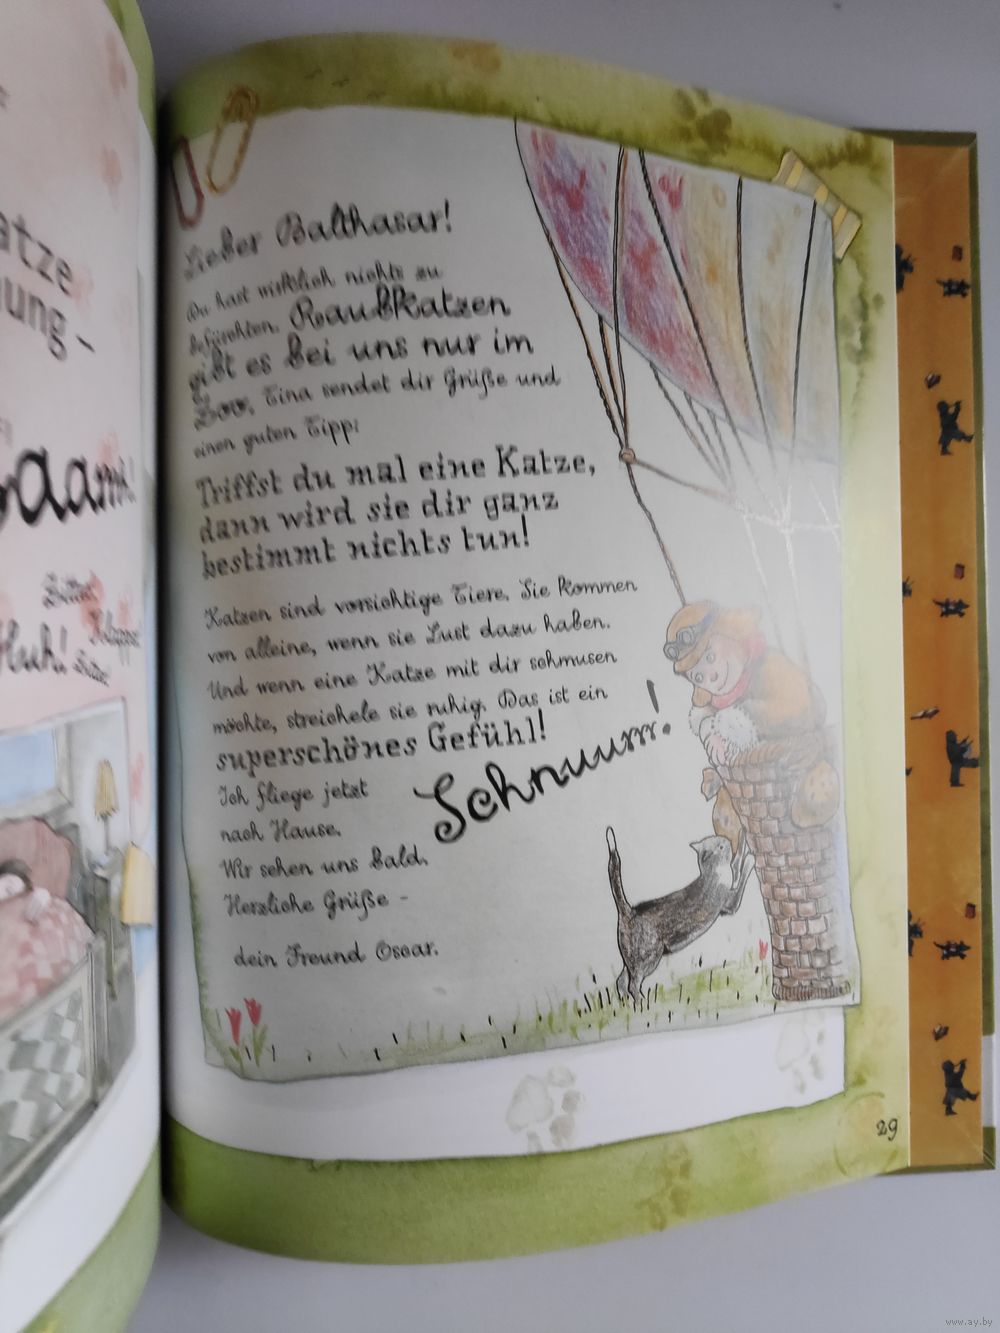 atze
ung –
Bitte!
Huh!
Bitte!
Lieber Balthasar!
Du hast wirklich nichts zu
befürchten. Raubkatzen
gibt es bei uns nur im
Zoo. Tina sendet dir Grüße und
einen guten Tipp:
Triffst du mal eine Katze,
dann wird sie dir ganz
bestimmt nichts tun!
Katzen sind vorsichtige Tiere. Sie kommen
von alleine, wenn sie Lust dazu haben.
Und wenn eine Katze mit dir schmusen
möchte, streichele sie ruhig. Das ist ein
superschönes Gefühl!
Schnuurrr!
Ich fliege jetzt
nach Hause.
Wir sehen uns bald.
Herzliche Grüße –
dein Freund Oscar.
29
www.ay.by